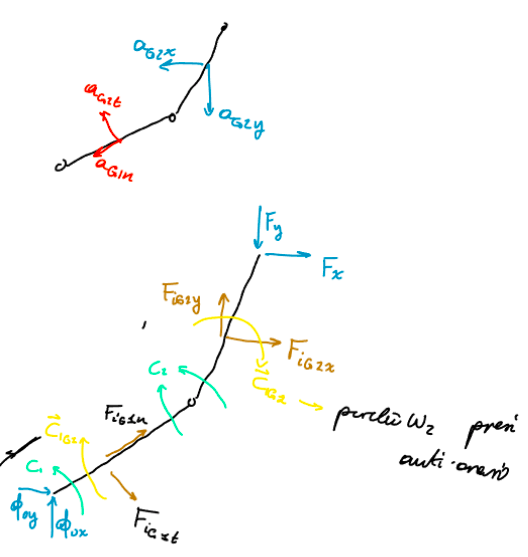 aG2x
aG2t
aG2y
aG1n
Fy
Fx
FiG2y
FiG2x
C2
CiG2
FiG1n
perchè ω2 presi
anti-orario
CiG1
C1
ϕoy
ϕox
FiG1t